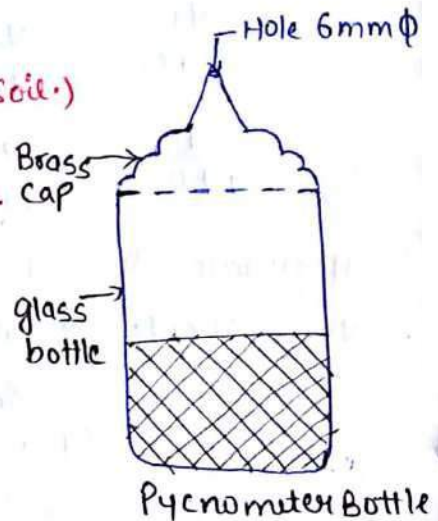 Hole 6mm ϕ
Soil.)
Brass
cap
glass
bottle
Pycnometer Bottle